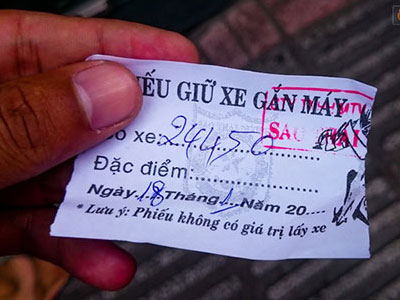 ẾU GIỮ XE GẮN MÁY
ố xe: 24450
Đặc điểm:
Ngày 18 Tháng 1 Năm 20
* Lưu ý: Phiếu không có giá trị lấy xe